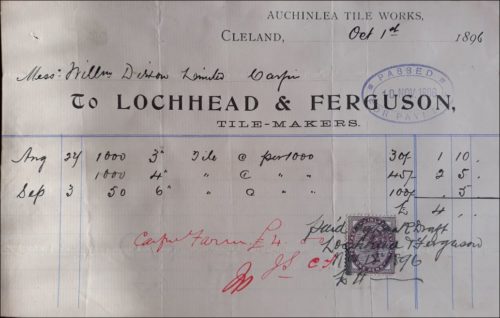 AUCHINLEA TILE WORKS,
CLELAND, Oct 1st 1896
Messrs Willm Dixon Limited
PASSED
NOV
To LOCHHEAD & FERGUSON,
TILE-MAKERS.
Aug 27 1000 3" Tile @ per 1000 30/ 1 10 .
1000 4" " @ " " 45/ 2 5 .
Sep 3 50 6" " @ " " 100/ . 5 .
£ 4 . .
Paid Draft
Farm £4
Lochhead & Ferguson
1896